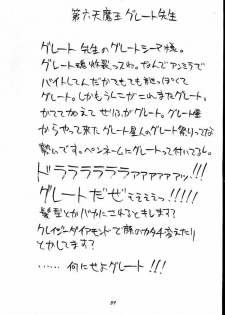 第六天魔王グレート先生
グレート先生のグレートシーマ様。
グレート魂炸裂ってわ。なんでアンミラで
バイトしてんだかてもても艶っぽくて
グレート。しかもうしこがこれまたグレート。
かててかえて ぜいぶがグレート。グレート星
からやって来たグレート星人のグレート祭りってな
勢いです。ペンネームにグレートって付いてるし。
ドララララララァァァァァァッ!!!
グレートだぜぇぇぇぇっ!!!!!
髪型とかバカにこれるとキレます?
クレイジーダイアモンドで顔のカタチ変えたり
とかしてます?
……何にせよグレート!!!